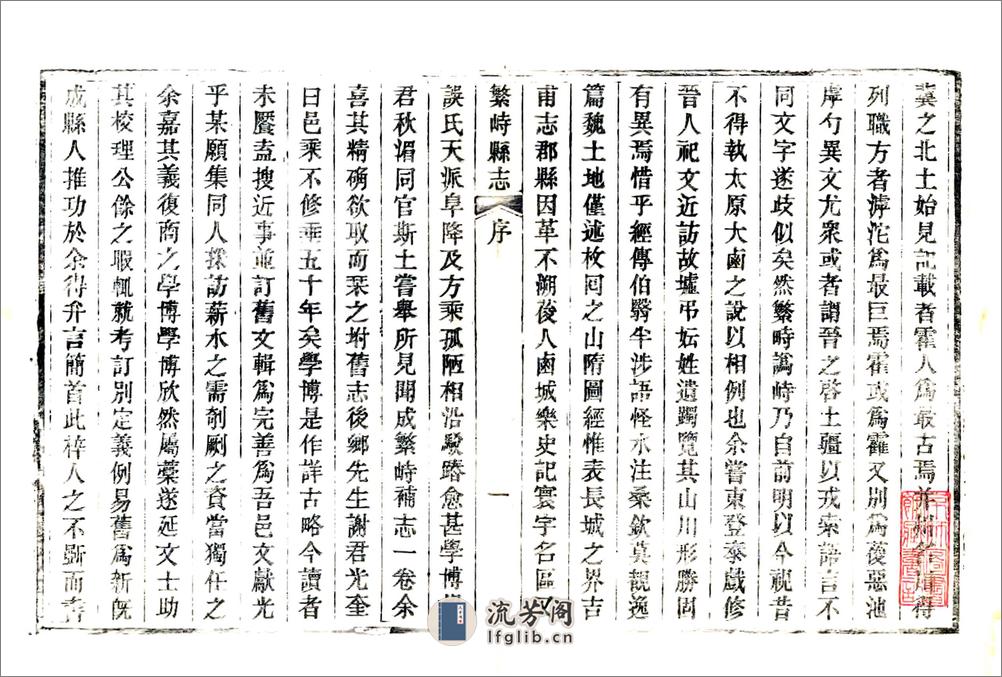 冀之北土始見記載者霍人爲最古焉并州名㴲得
列職方者滹沱爲最巨焉霍或爲靃又別爲後惡池
虖勺異文尤衆或者謂晉之啓土疆以戎索語言不
同文字遂歧似矣然繁畤譌峙乃自前明以今視昔
不得執太原大鹵之說以相例也余嘗東登泰戲修
晉人祀文近訪故墟弔妘姓遺躅覽其山川形勝固
有異焉惜乎經傳伯翳半涉語怪水注桑欽莫覩逸
篇魏土地僅述枚回之山隋圖經惟表長城之界吉
甫志郡縣因革不溯葰人鹵城樂史記寰宇名區
繁峙縣志 序 一
誤氏天派阜降及方乘孤陋相沿駁踳愈甚學博
君秋湄同官斯土嘗舉所見聞成繁峙補志一卷余
喜其精确欲取而栞之坿舊志後鄉先生謝君光奎
曰邑乘不修垂五十年矣學博是作詳古略今讀者
未饜盍搜近事並訂舊文輯爲完善爲吾邑文獻光
乎某願集同人採訪薪水之需剞劂之資當獨任之
余嘉其義復商之學博學博欣然屬藳遂延文士助
其校理公餘之暇輒就考訂別定義例易舊爲新旣
成縣人推功於余得弁言簡首此梓人之不斲而
流芳阁
lfglib.cn